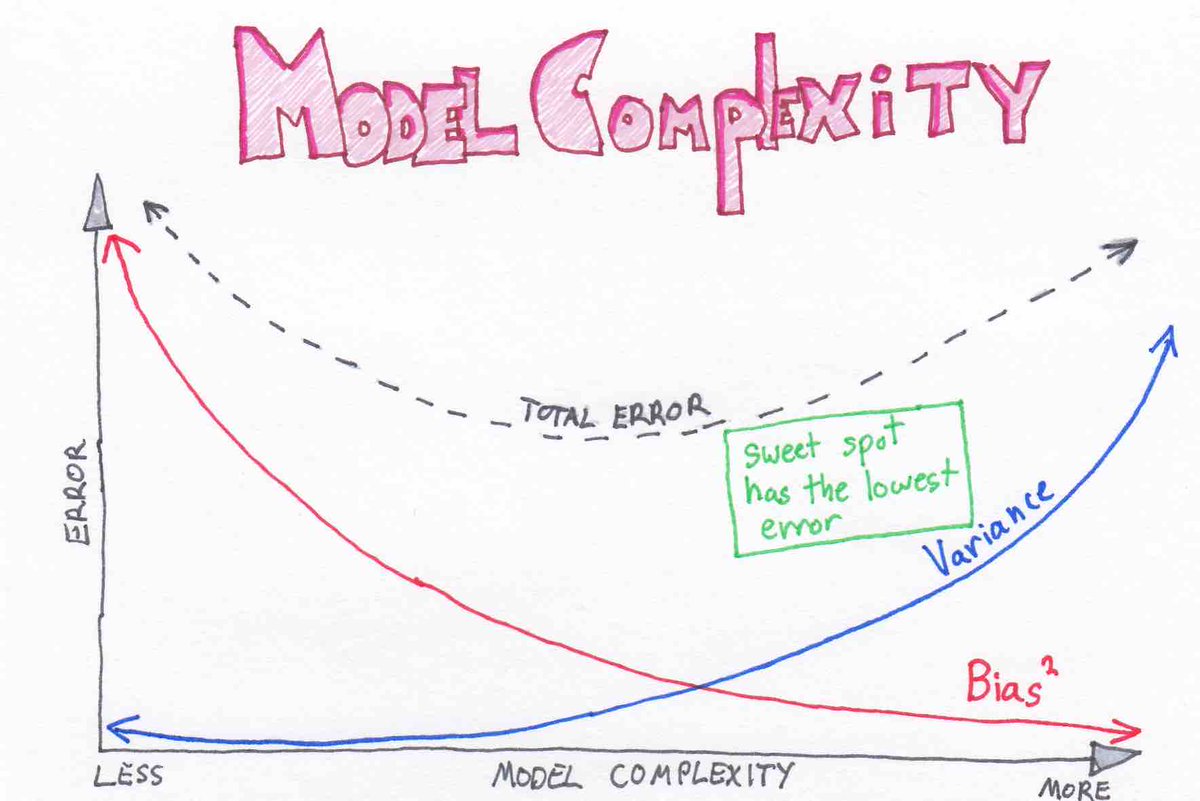 MODEL COMPLEXiTY
TOTAL ERROR
sweet spot
has the lowest
error
ERROR
Variance
Bias²
LESS
MODEL COMPLEXITY
MORE